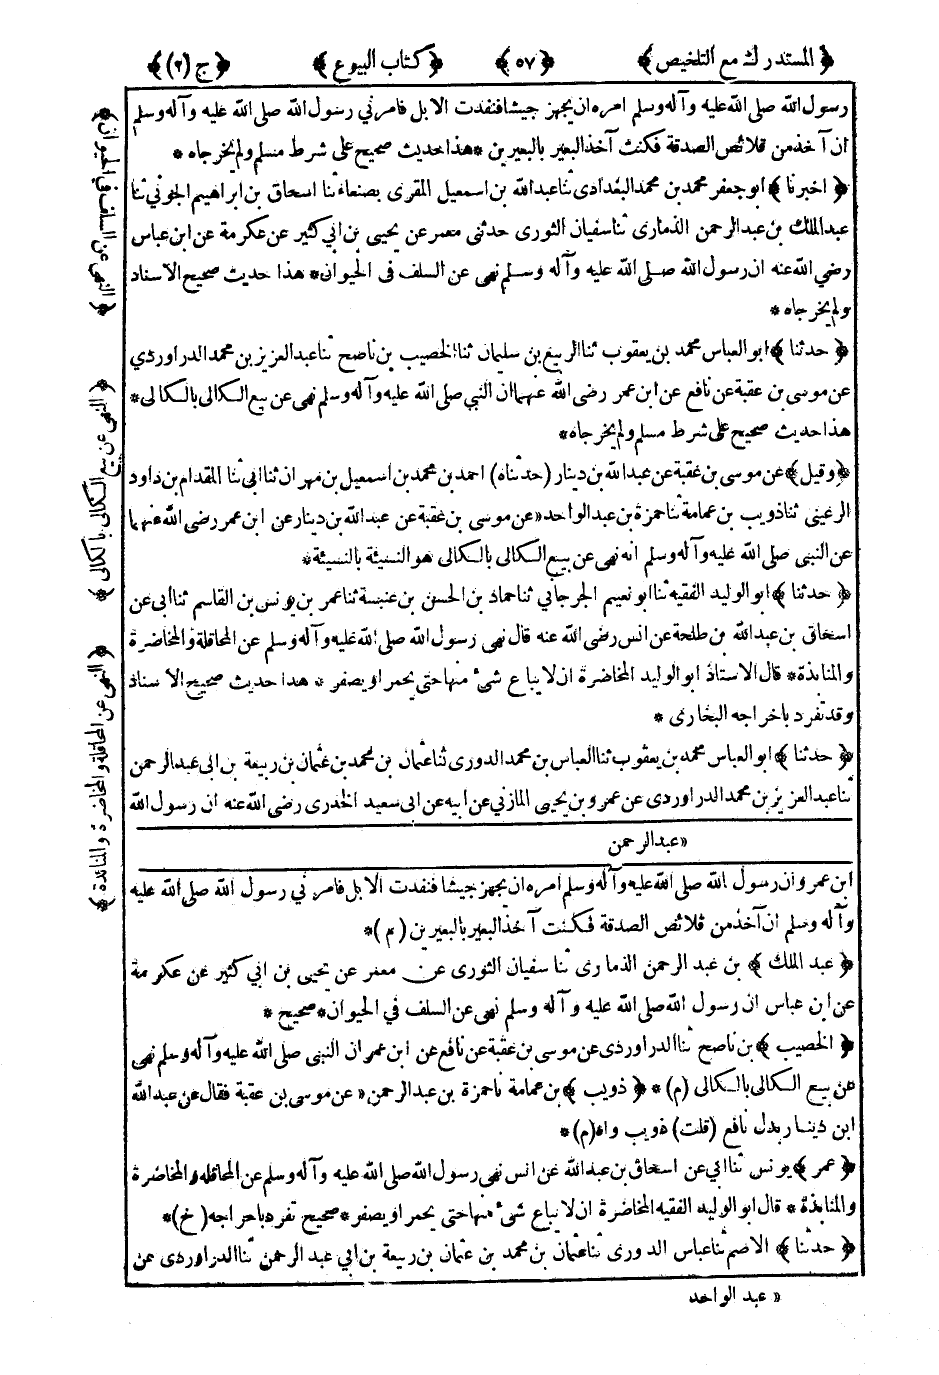 ﴿ المستدرك مع التلخيص ﴾ ﴿ ٥٧ ﴾ ﴿ كتاب البيوع ﴾ ﴿ ج (٢) ﴾
رسول الله صلى الله عليه وآله وسلم امره ان يجهز جيشا فنفدت الابل فامرني رسول الله صلى الله عليه وآله وسلم
ان آخذ من قلائص الصدقة فكنت آخذ البعير بالبعيرين * هذا حديث صحيح على شرط مسلم ولم يخرجاه *
﴿ اخبرنا ﴾ ابو جعفر محمد بن محمد البغدادى ثنا عبد الله بن اسمعيل المقرى بصنعاء ثنا اسحاق بن ابراهيم الجوتي ثنا
عبد الملك بن عبد الرحمن الذمارى ثنا سفيان الثورى حدثنى معمر عن يحيى بن ابي كثير عن عكرمة عن ابن عباس
رضي الله عنه ان رسول الله صلى الله عليه وآله وسلم نهى عن السلف فى الحيوان * هذا حديث صحيح الاسناد
ولم يخرجاه *
﴿ حدثنا ﴾ ابو العباس محمد بن يعقوب ثنا الربيع بن سليمان ثنا الخصيب بن ناصح ثنا عبد العزيز بن محمد الدراوردي
عن موسى بن عقبة عن نافع عن ابن عمر رضى الله عنهما ان النبي صلى الله عليه وآله وسلم نهى عن بيع الكالى بالكالى *
هذا حديث صحيح على شرط مسلم ولم يخرجاه *
﴿ وقيل ﴾ عن موسى بن عقبة عن عبد الله بن دينار (حدثناه) احمد بن محمد بن اسمعيل بن مهران ثنا ابى ثنا المقدام بن داود
الرعينى ثنا ذويب بن عمامة ثنا حمزة بن عبد الواحد « عن موسى بن عقبة عن عبد الله بن دينار عن ابن عمر رضى الله عنهما
عن النبى صلى الله عليه وآله وسلم انه نهى عن بيع الكالى بالكالى هو النسيئة بالنسيئة *
﴿ حدثنا ﴾ ابو الوليد الفقيه ثنا ابو نعيم الجرجاني ثنا حماد بن الحسن بن عنبسة ثنا عمر بن يونس بن القاسم ثنا ابى عن
اسحاق بن عبد الله بن طلحة عن انس رضى الله عنه قال نهى رسول الله صلى الله عليه وآله وسلم عن المحاقلة والمخاضرة
والمنابذة * قال الاستاذ ابو الوليد المخاضرة ان لا يباع شىء منها حتى يحمر او يصفر * هذا حديث صحيح الاسناد
وقد تفرد باخراجه البخارى *
﴿ حدثنا ﴾ ابو العباس محمد بن يعقوب ثنا العباس بن محمد الدورى ثنا عثمان بن محمد بن عثمان بن ربيعة بن ابى عبد الرحمن
ثنا عبد العزيز بن محمد الدراوردى عن عمرو بن يحيى المازني عن ابيه عن ابى سعيد الخدرى رضى الله عنه ان رسول الله
« عبد الرحمن
ابن عمرو ان رسول الله صلى الله عليه وآله وسلم امره ان يجهز جيشا فنفدت الابل فامرني رسول الله صلى الله عليه
وآله وسلم ان آخذ من قلائص الصدقة فكنت آخذ البعير بالبعيرين (م) *
﴿ عبد الملك ﴾ بن عبد الرحمن الذمارى ثنا سفيان الثورى عن معمر عن يحيى بن ابي كثير عن عكرمة
عن ابن عباس ان رسول الله صلى الله عليه وآله وسلم نهى عن السلف في الحيوان * صحيح *
﴿ الخصيب ﴾ بن ناصح ثنا الدراوردى عن موسى بن عقبة عن نافع عن ابن عمر ان النبى صلى الله عليه وآله وسلم نهى
عن بيع الكالى بالكالى (م) * ﴿ ذويب ﴾ بن عمامة نا حمزة بن عبد الرحمن « عن موسى بن عقبة فقال عن عبد الله
ابن دينار بدل نافع (قلت) ذويب واه (م) *
﴿ عمر ﴾ يونس ثنا ابي عن اسحاق بن عبد الله عن انس نهى رسول الله صلى الله عليه وآله وسلم عن المحاقلة والمخاضرة
والمنابذة * قال ابو الوليد الفقيه المخاضرة ان لا يباع شىء منها حتى يحمر او يصفر * صحيح تفرد باخراجه (خ) *
﴿ حدثنا ﴾ الاصم ثنا عباس الدورى ثنا عثمان بن محمد بن عثمان بن ربيعة بن ابي عبد الرحمن ثنا الدراوردى عن
« عبد الواحد
﴿ النهى عن السلف في الحيوان ﴾
﴿ النهى عن بيع الكالى بالكالى ﴾
﴿ النهى عن المحاقلة والمخاضرة والمنابذة ﴾